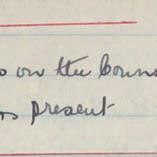 on the Coun
present